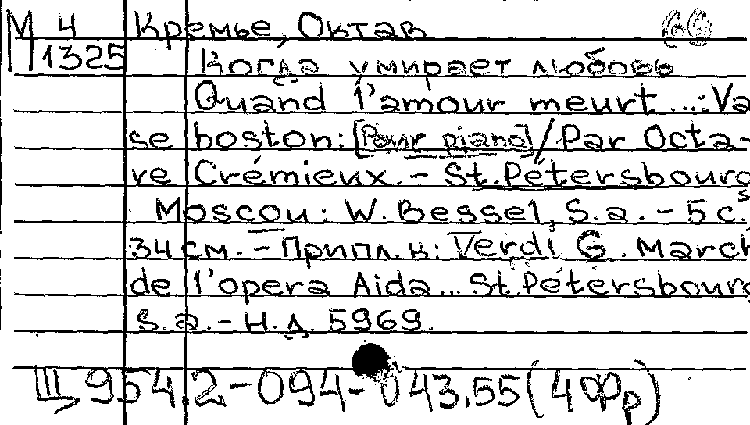 М 4 Кремье, Октав
П 1325 Когда умирает любовь
Quand l'amour meurt...: Va
se boston: [Pour piano] / Par Octa-
ve Crémieux. - St. Petersbourg
Moscou: W. Bessel, S. a. - 5 с.
34 см. - Припл. к: Verdi G. March
de l'opera Aida... St. Petersbourg
S. a. - Н.д. 5969.
Щ 954.2-094-043.55(4Фр)